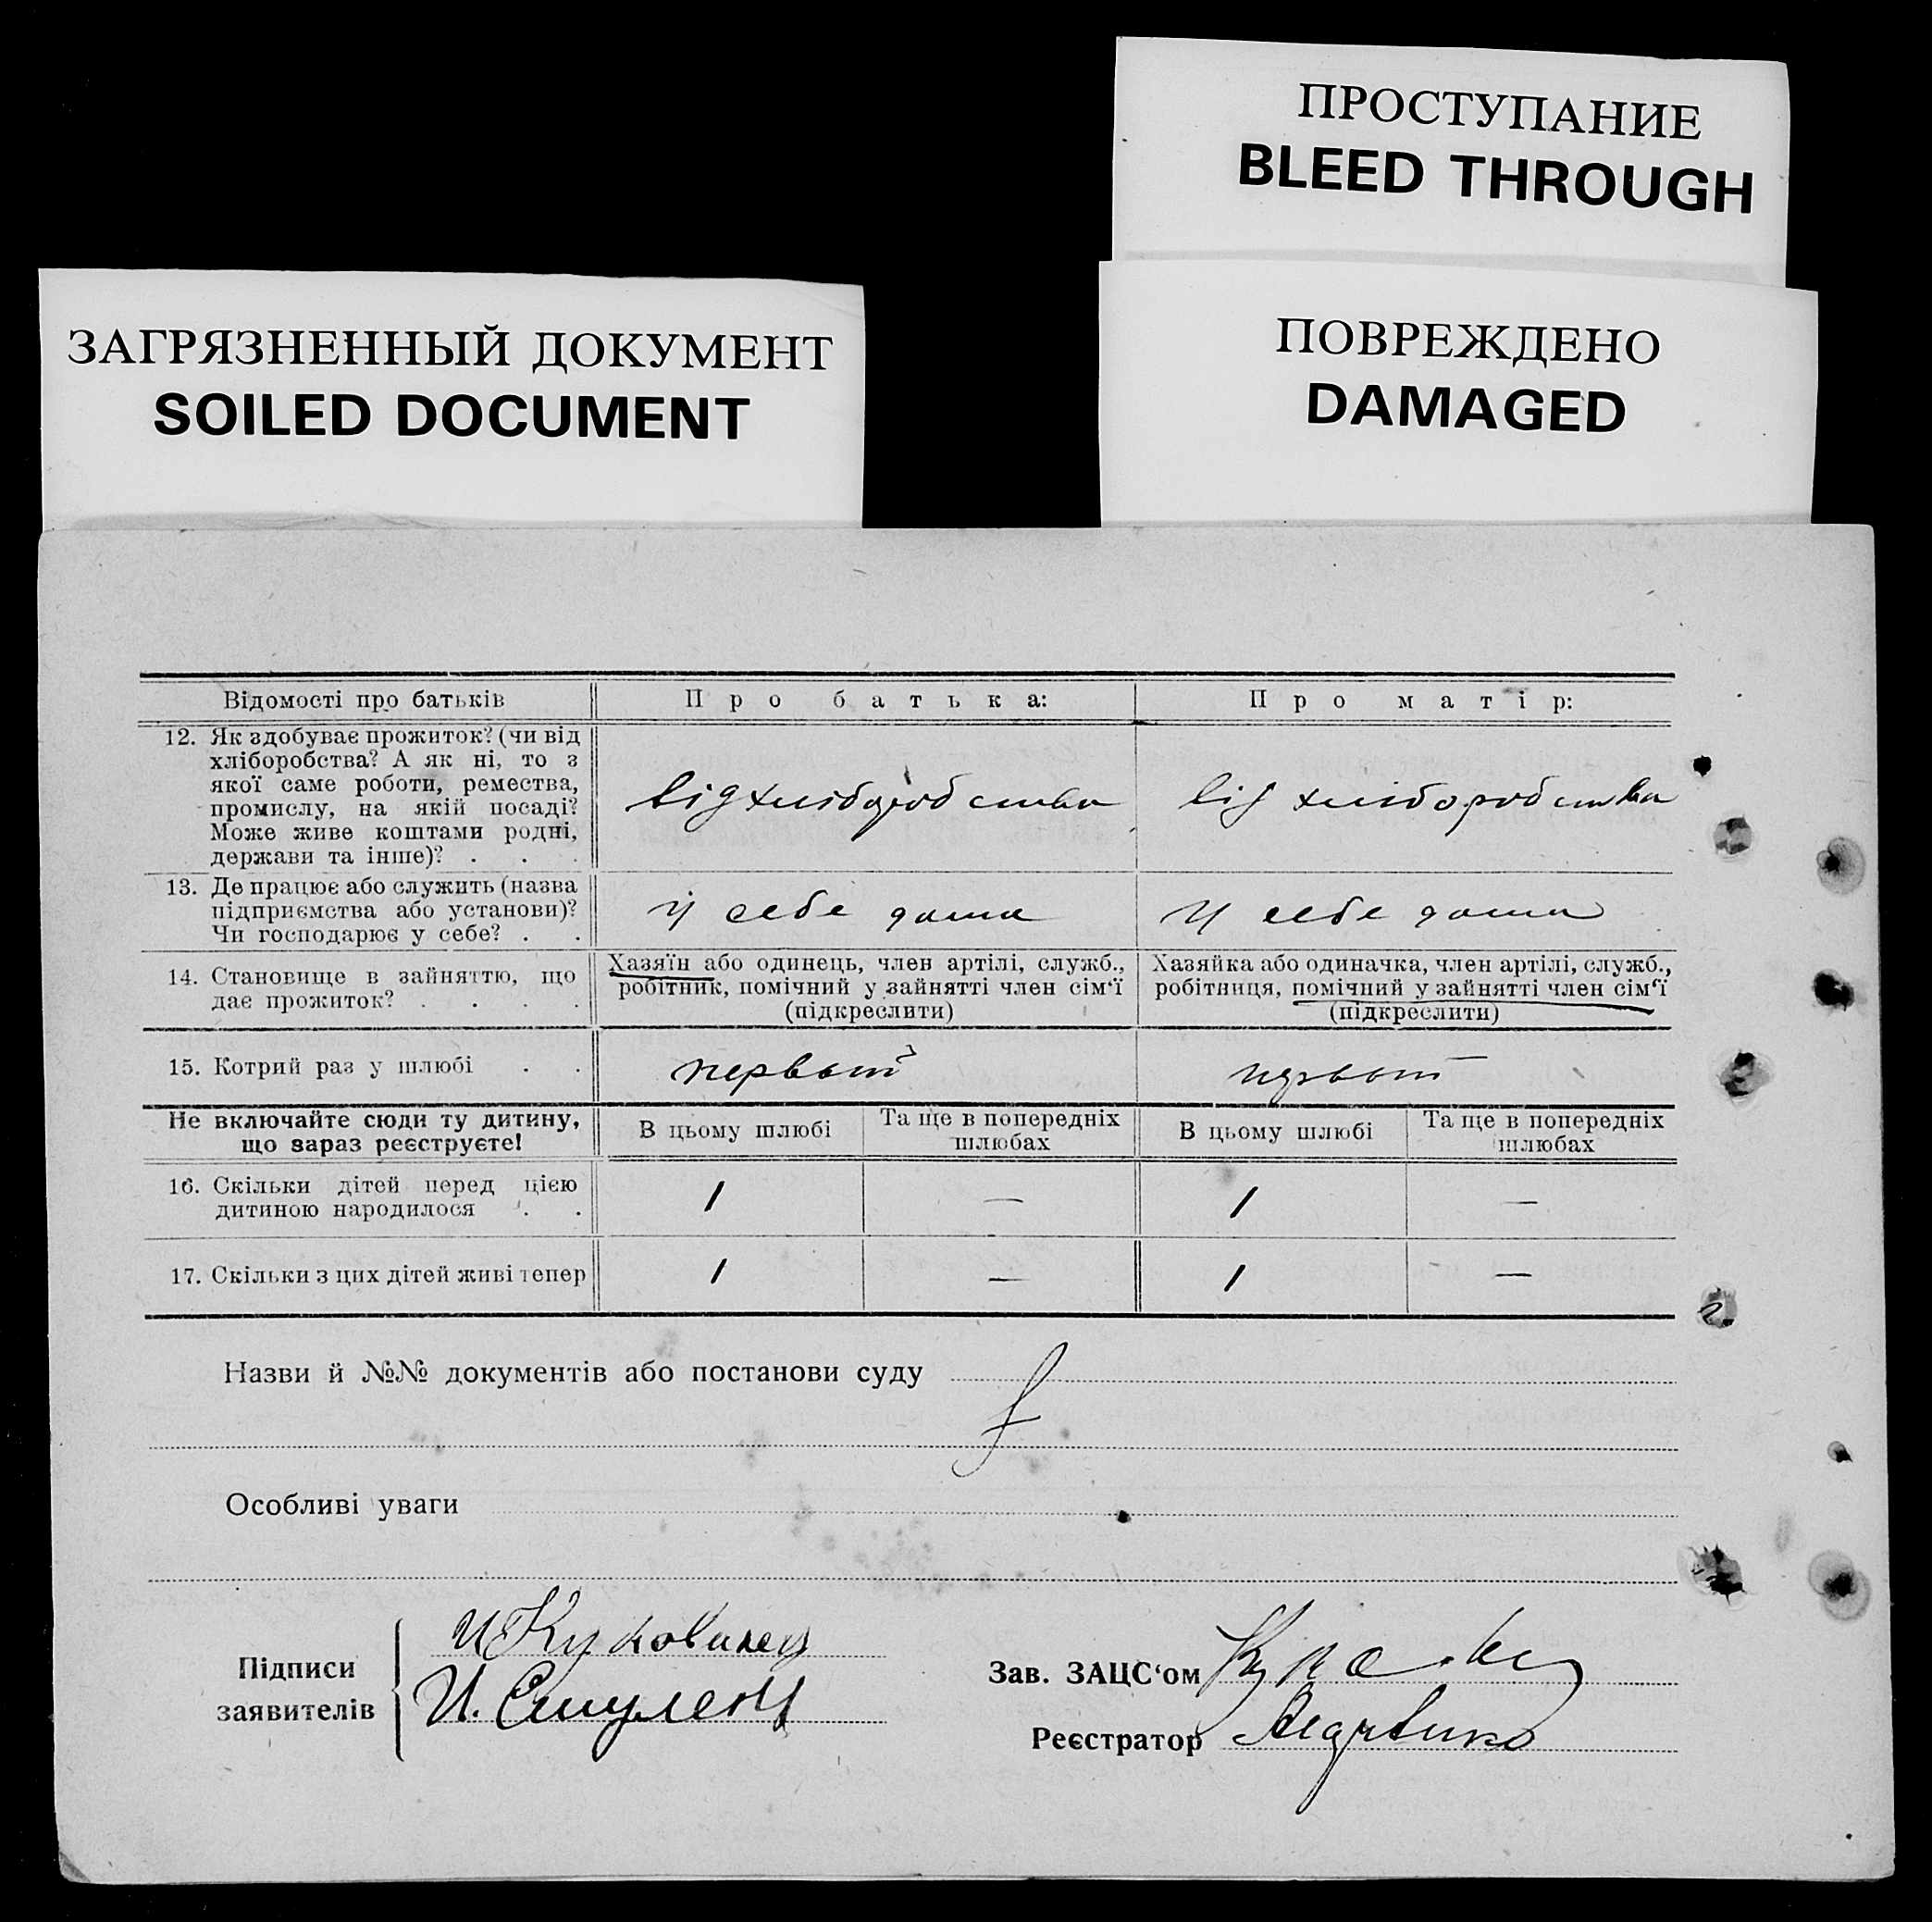 ПРОСТУПАНИЕ
BLEED THROUGH
ЗАГРЯЗНЕННЫЙ ДОКУМЕНТ
SOILED DOCUMENT
ПОВРЕЖДЕНО
DAMAGED
Відомості про батьків Про батька: Про матір:
12. Як здобуває прожиток? (чи від
хліборобства? А як ні, то з
якої саме роботи, ремества,
промислу, на якій посаді?
Може живе коштами родні,
держави та інше)? . . .
від хліборобства від хліборобства
13. Де працює або служить (назва
підприємства або установи)?
Чи господарює у себе? . .
у себе дома у себе дома
14. Становище в зайняттю, що
дає прожиток? . . . .
Хазяїн або одинець, член артілі, служб.,
робітник, помічний у зайнятті член сім‘ї
(підкреслити)
Хазяйка або одиначка, член артілі, служб.,
робітниця, помічний у зайнятті член сім‘ї
(підкреслити)
15. Котрий раз у шлюбі . . первый первый
Не включайте сюди ту дитину,
що зараз реєструєте!
В цьому шлюбі Та ще в попередніх
шлюбах
В цьому шлюбі Та ще в попередніх
шлюбах
16. Скільки дітей перед цією
дитиною народилося . .
1 — 1 —
17. Скільки з цих дітей живі тепер 1 — 1 —
Назви й №№ документів або постанови суду
Особливі уваги
Підписи
заявителів
И
И.
Зав. ЗАЦС‘ом
Реєстратор